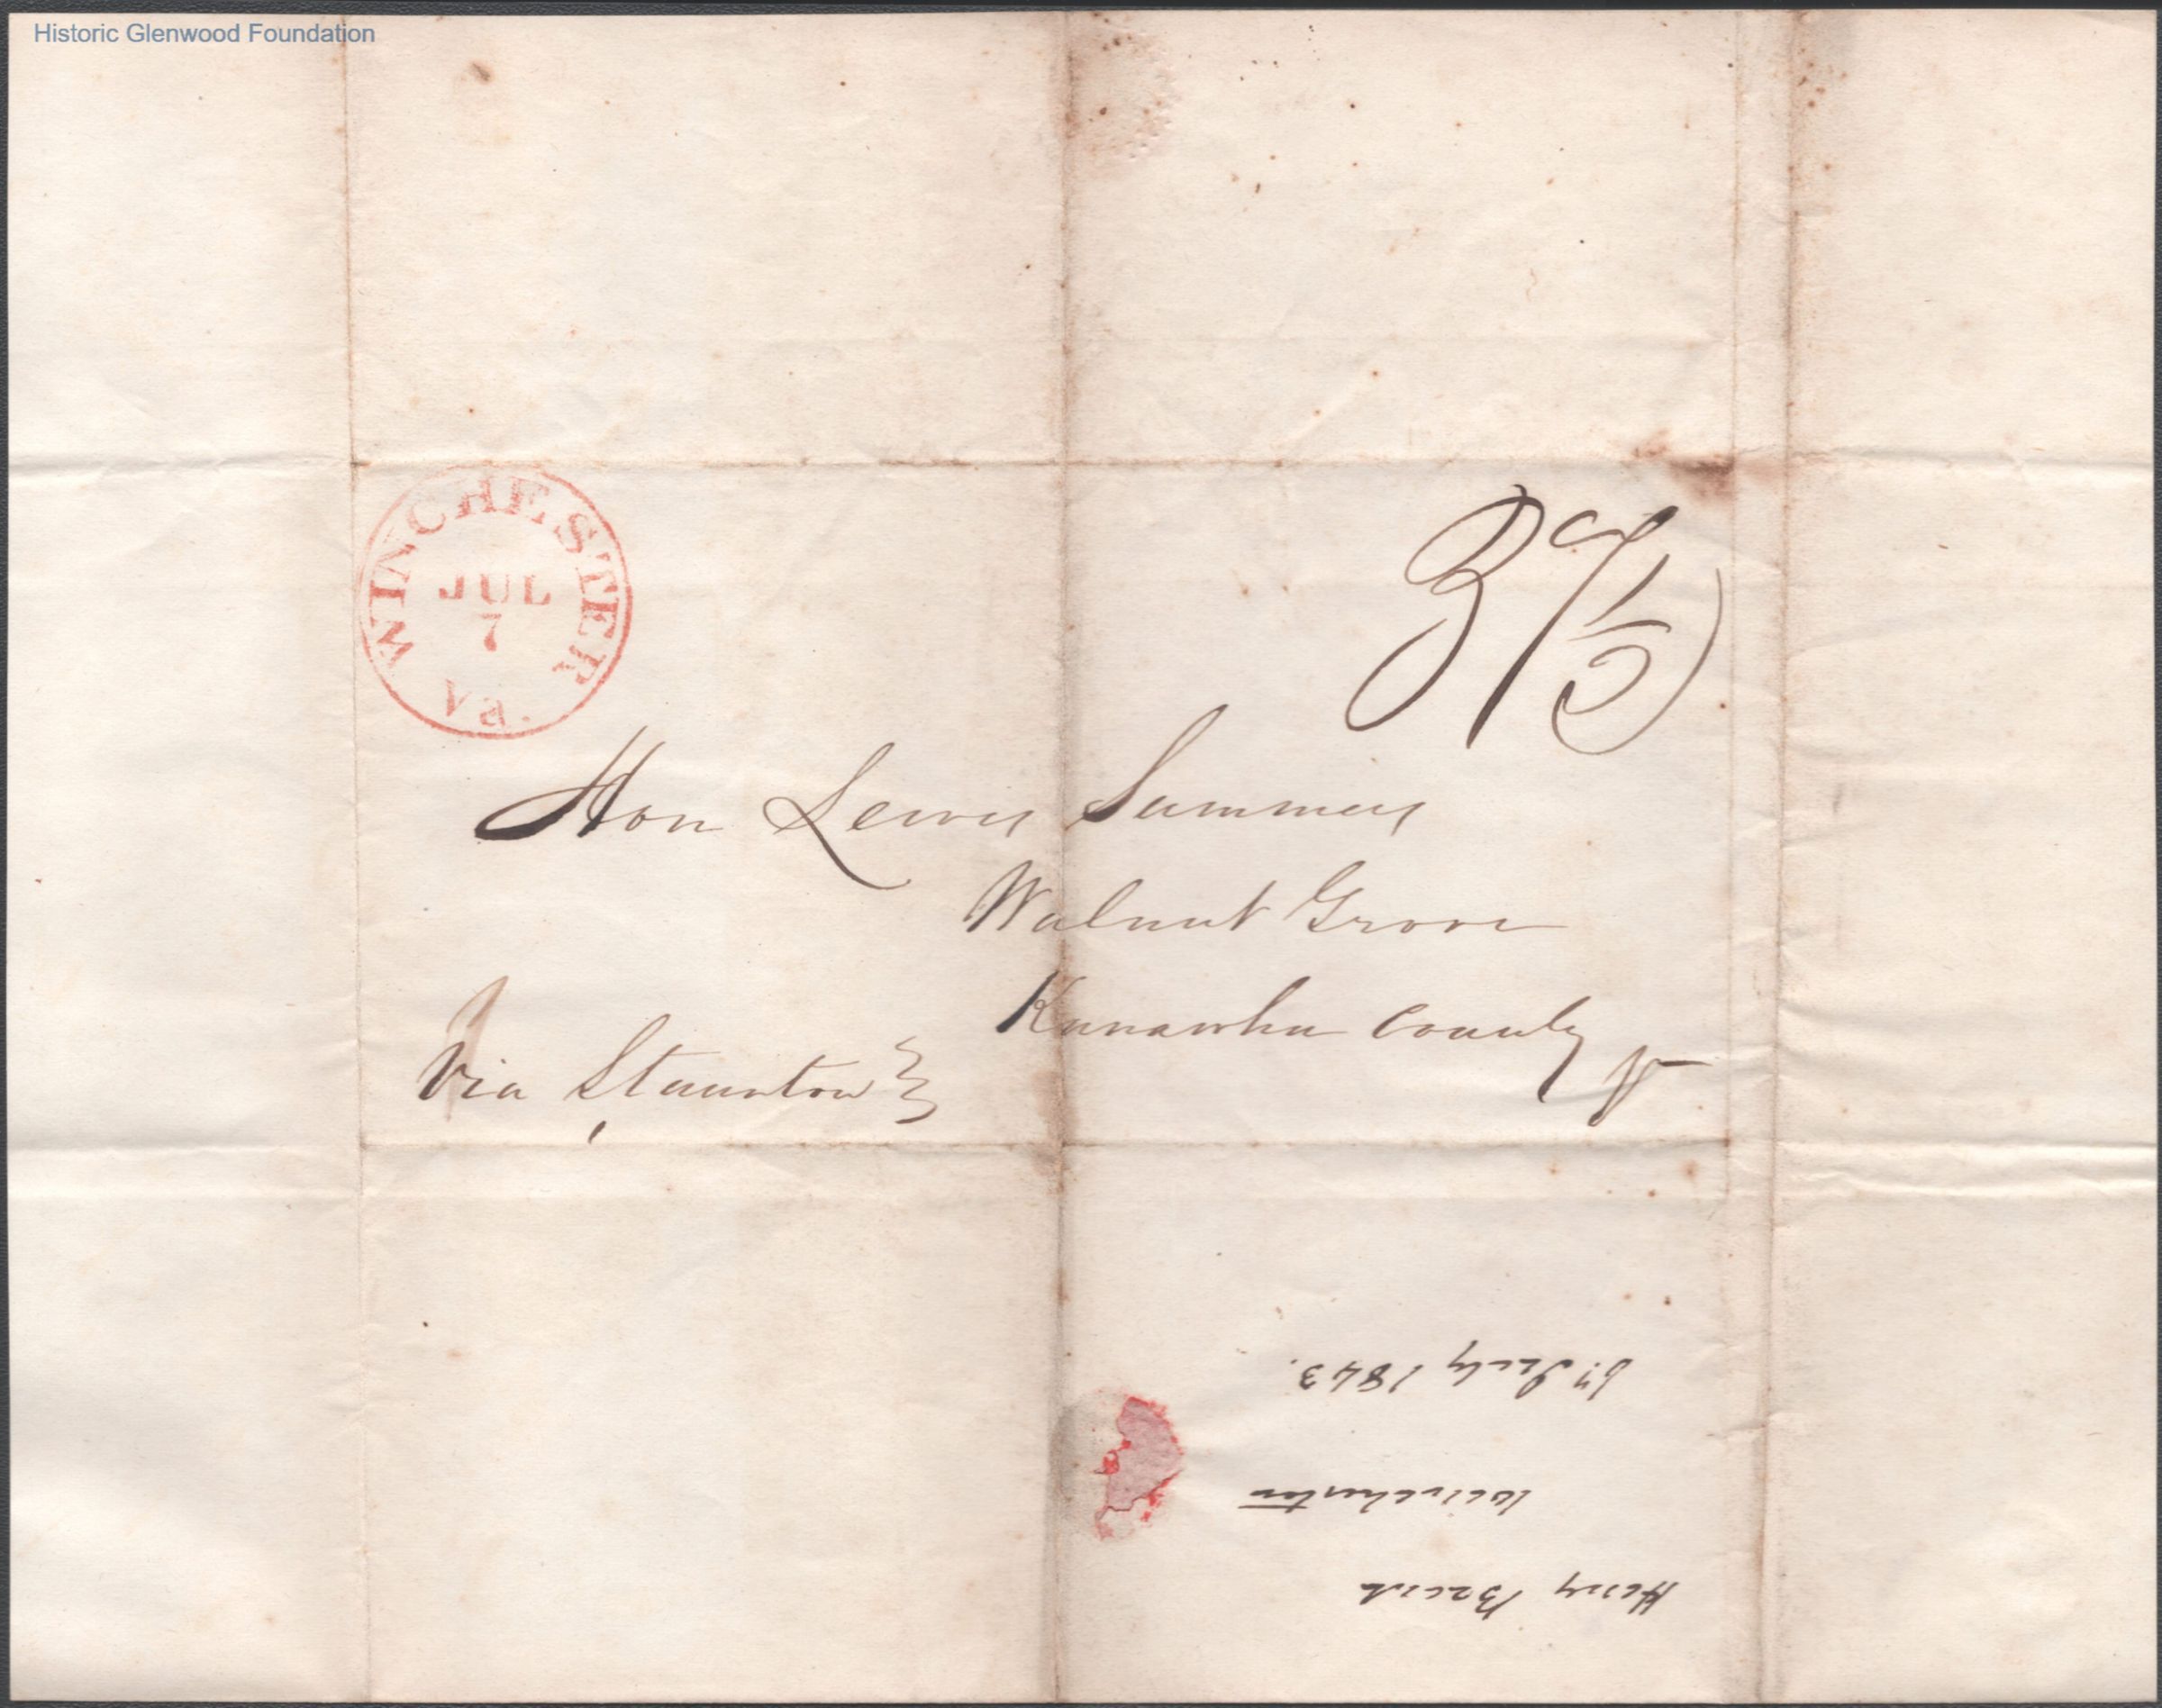 Historic Glenwood Foundation
WINCHESTER
JUL
7
Va.
37 1/2
Hon Lewis Summers
Walnut Grove
Kanawha County
Va
Via Staunton
Henry
Winchester
6th July 1843.